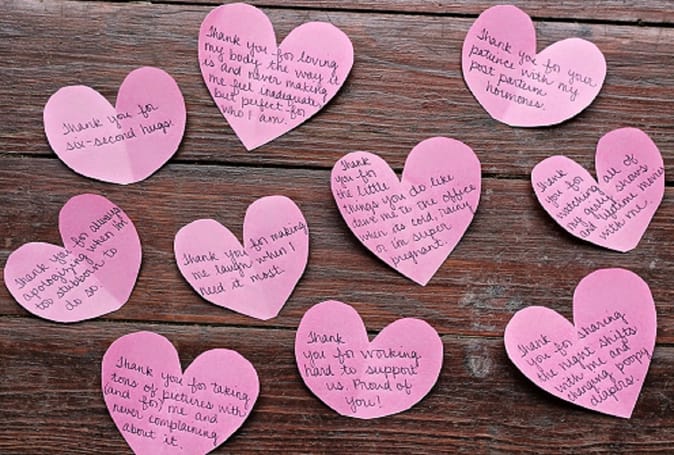 Thank you for loving
my body the way it
is and never making
me feel inadequate,
but perfect for
who I am.
Thank you for your
patience with my
post partum
hormones.
Thank you for
six-second hugs.
Thank
you for
the little
things you do like
drive me to the office
when its cold, rainy
or i'm super
pregnant.
Thank
you for
watching all of
my girly shows
and lifetime movies
with me.
Thank you for always
apologizing when I'm
too stubborn to
do so.
Thank you for making
me laugh when I
need it most.
Thank you for taking
tons of pictures with
(and for) me and
never complaining
about it.
Thank
you for working
hard to support
us. Proud of
you!
Thank
you for sharing
the night shifts
with me and
changing poopy
diapers.